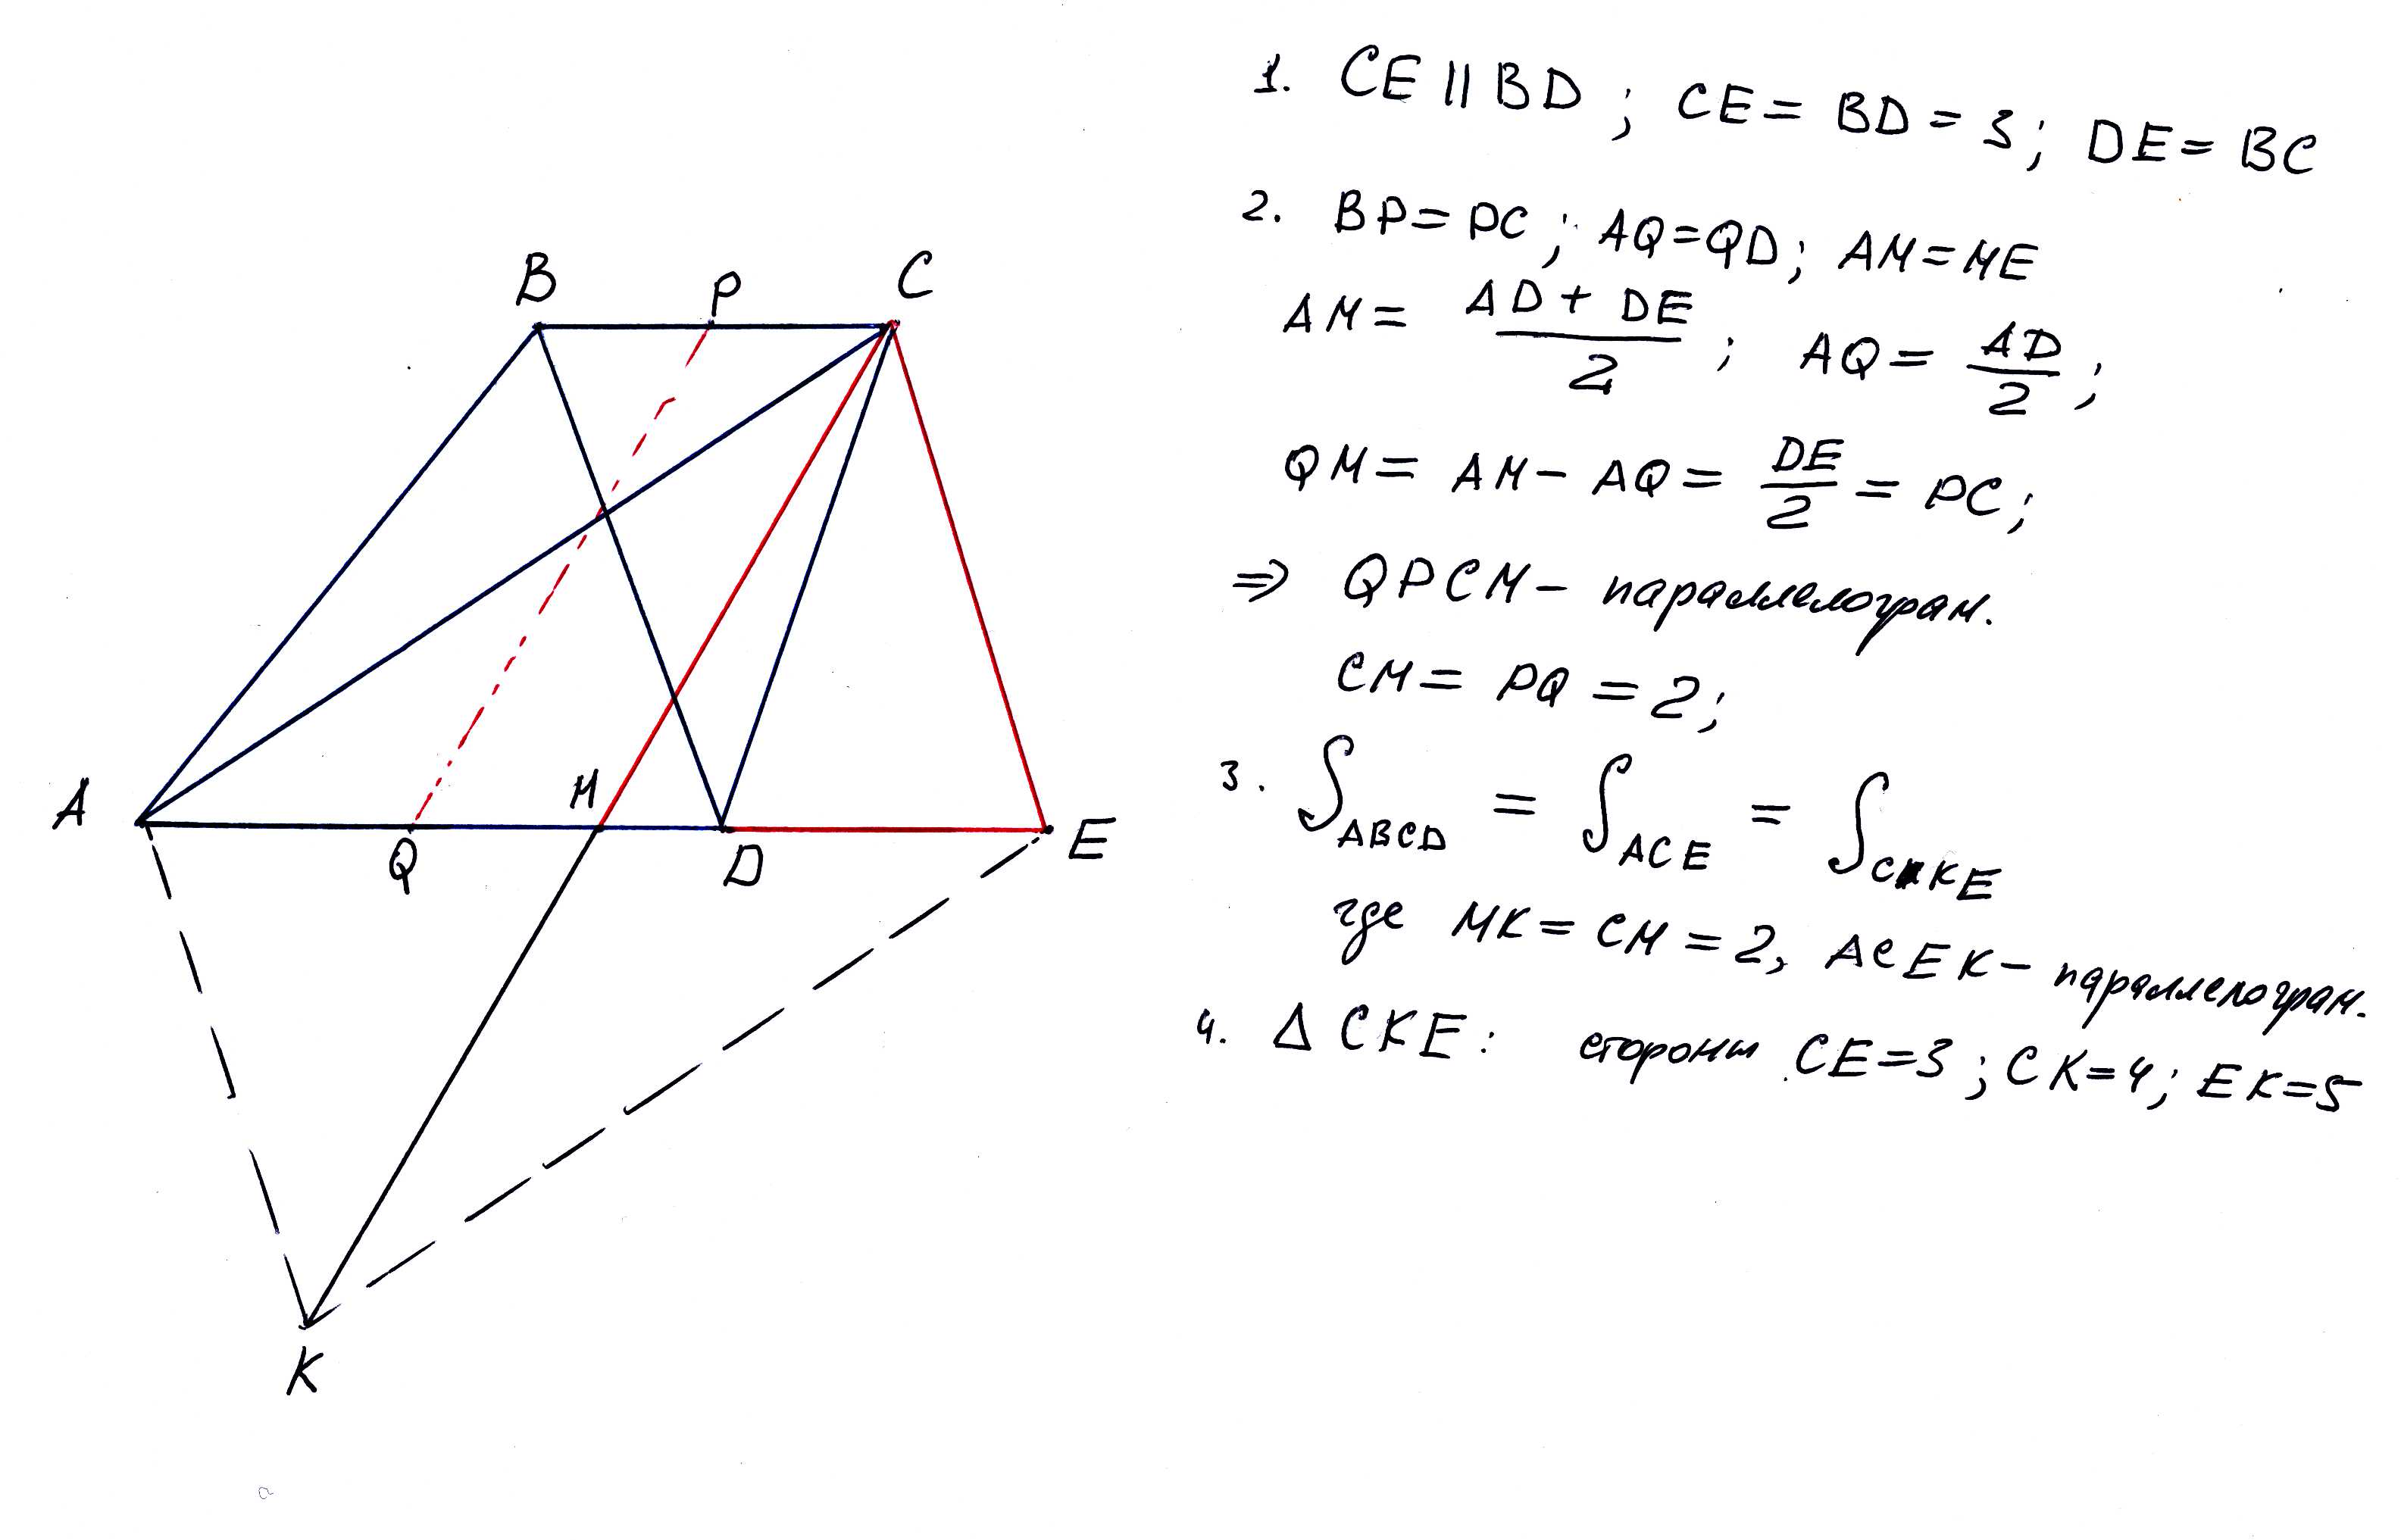 1. CE || BD ; CE = BD = 3; DE = BC
2. BP = PC ; AQ = QD; AM = ME
AM = \frac{AD + DE}{2} ; AQ = \frac{AD}{2} ;
QM = AM - AQ = \frac{DE}{2} = PC;
⇒ QPCM - параллелограм.
CM = PQ = 2;
3. S_{ABCD} = S_{ACE} = S_{CKE}
где MK = CM = 2, ACEK - параллелограм.
4. Δ CKE: стороны CE = 3 ; CK = 4; EK = 5
B P C
A Q M D E
K